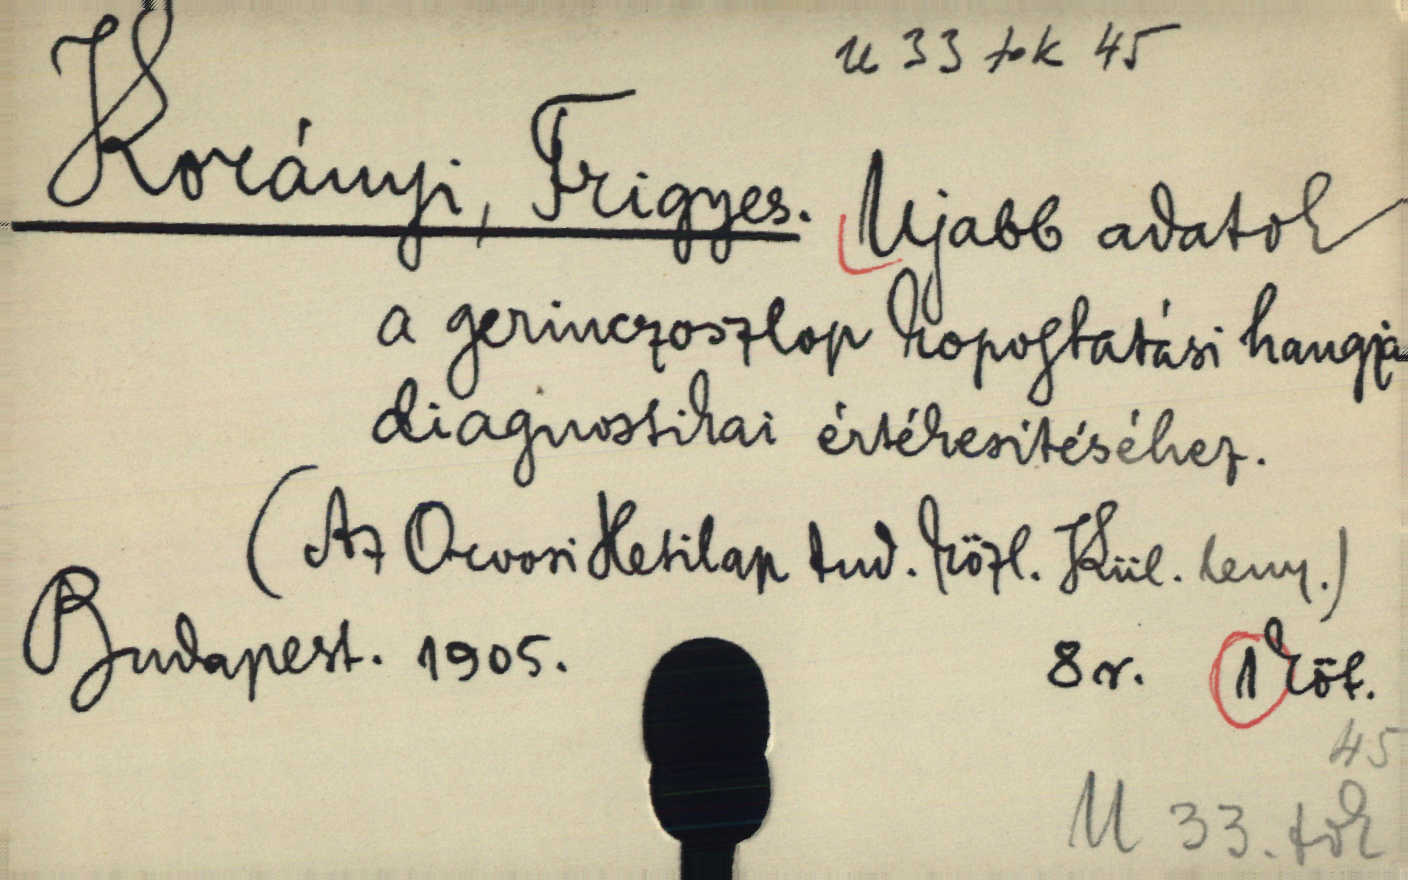 U 33 tok 45
Korányi, Frigyes. Ujabb adatok
a gerinczoszlop kopogtatási hangja
diagnostikai értékesitéséhez.
(Az Orvosi Hetilap tud. közl. Kül. leny.)
Budapest. 1905. 8r. 1 köt.
45
U 33. tok